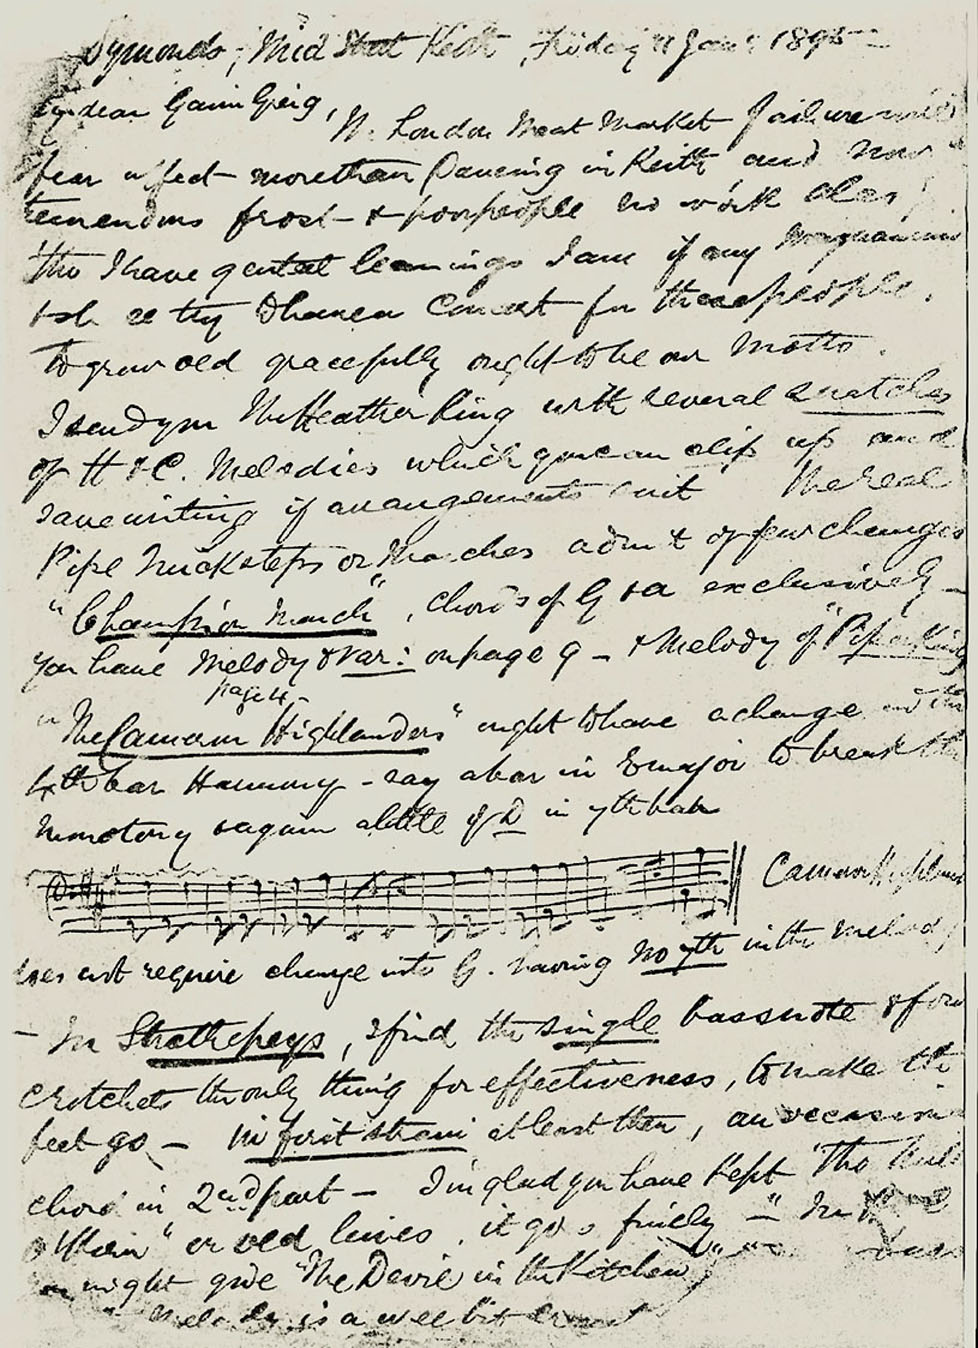 Symonds, Mid Street Keith, Friday 11 Jany 1895
My dear Gavin Greig,
The London Meat Market failure will
fear affect more than Dancing in Keith and now
tremendous frost & poor people no work also
Tho I have genteel leanings I am if any
to get up a concert for these people.
To grow old gracefully ought to be our motto.
I send you The Heather King with several snatches
of H & C. Melodies which you can slip up and
save writing if arrangements suit The real
Pipe Quicksteps or Marches admit of few changes
"Champion March", chords of G & A exclusively –
You have Melody & Var: on page 9 – & Melody of "Piper King
page 4 –
"The Cameron Highlanders" ought to have a change in the
4th bar Harmony – say a bar in E major to break the
monotony & again a little of D in 7th bar
Cameron Highlanders
does not require change into G. having no 7th in the melody
– In Strathspeys, I find the single bassnote of four
crotchets the only thing for effectiveness, to make the
feet go – In first strain at least then, an occasional
chord in 2nd part – I'm glad you have kept 'The
o' Hein" on old lines, it goes finely – In
might give "The Devil in the Kitchen"
Melody is a wee bit